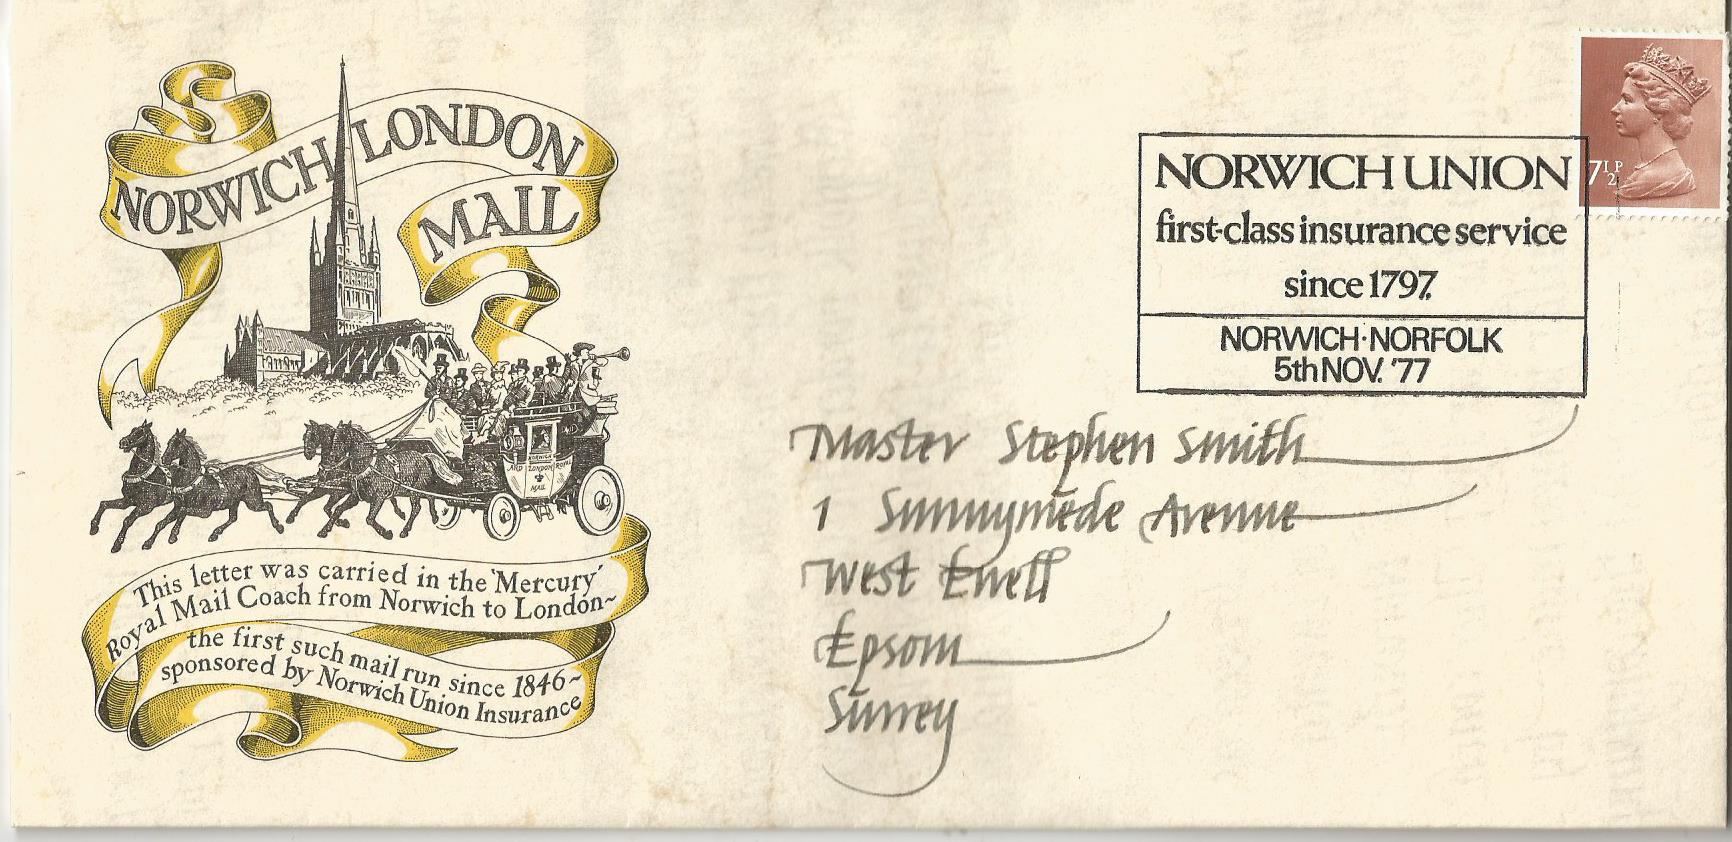 NORWICH LONDON
MAIL
NORWICH
AND LONDON ROYAL
MAIL
This letter was carried in the 'Mercury'
Royal Mail Coach from Norwich to London~
the first such mail run since 1846~
sponsored by Norwich Union Insurance
7½P
NORWICH UNION
first-class insurance service
since 1797.
NORWICH·NORFOLK
5th NOV. '77
Master Stephen Smith
1 Sunnymede Avenue
West Ewell
Epsom
Surrey